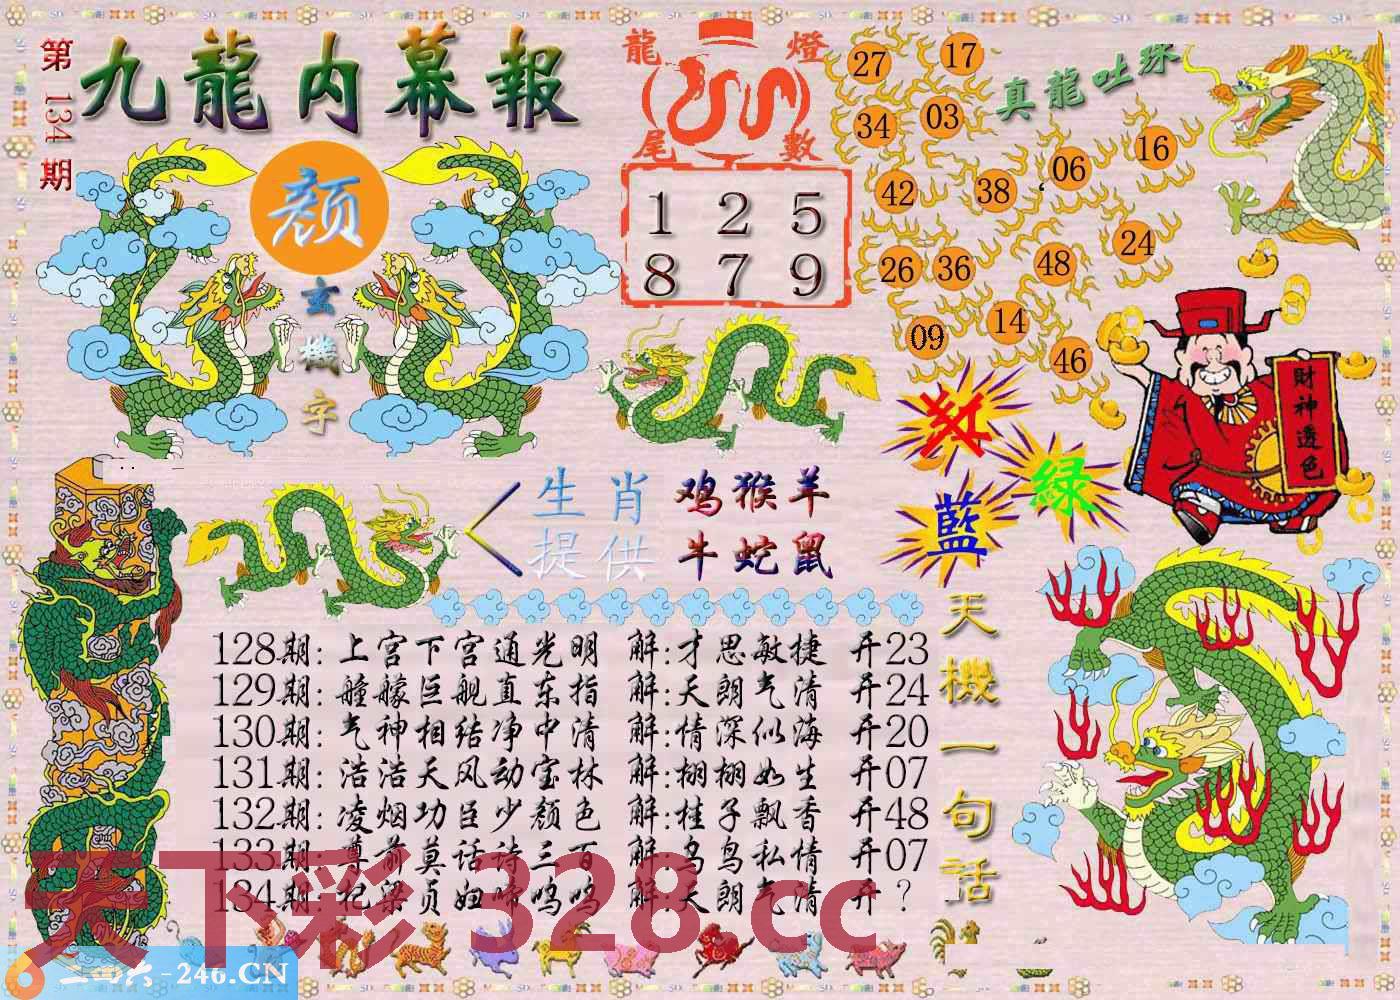 第134期
九龍内幕報
颜
玄機字
龍燈
尾數
1 2 5
8 7 9
真龍吐珠
27 17
34 03
42 38 06 16
26 36 48 24
09 14 46
財神透色
红
绿
藍
生肖
提供
鸡猴羊
牛蛇鼠
128期:上宫下宫通光明 解:才思敏捷 开23
129期:艟艨巨舰直东指 解:天朗气清 开24
130期:气神相结净中清 解:情深似海 开20
131期:浩浩天风动宝林 解:栩栩如生 开07
132期:凌烟功臣少颜色 解:桂子飘香 开48
133期:尊前莫话诗三百 解:乌鸟私情 开07
134期:杞梁贞妇啼呜呜 解:天朗气清 开?
天機一句話
天下彩 328.cc
二四六-246.CN